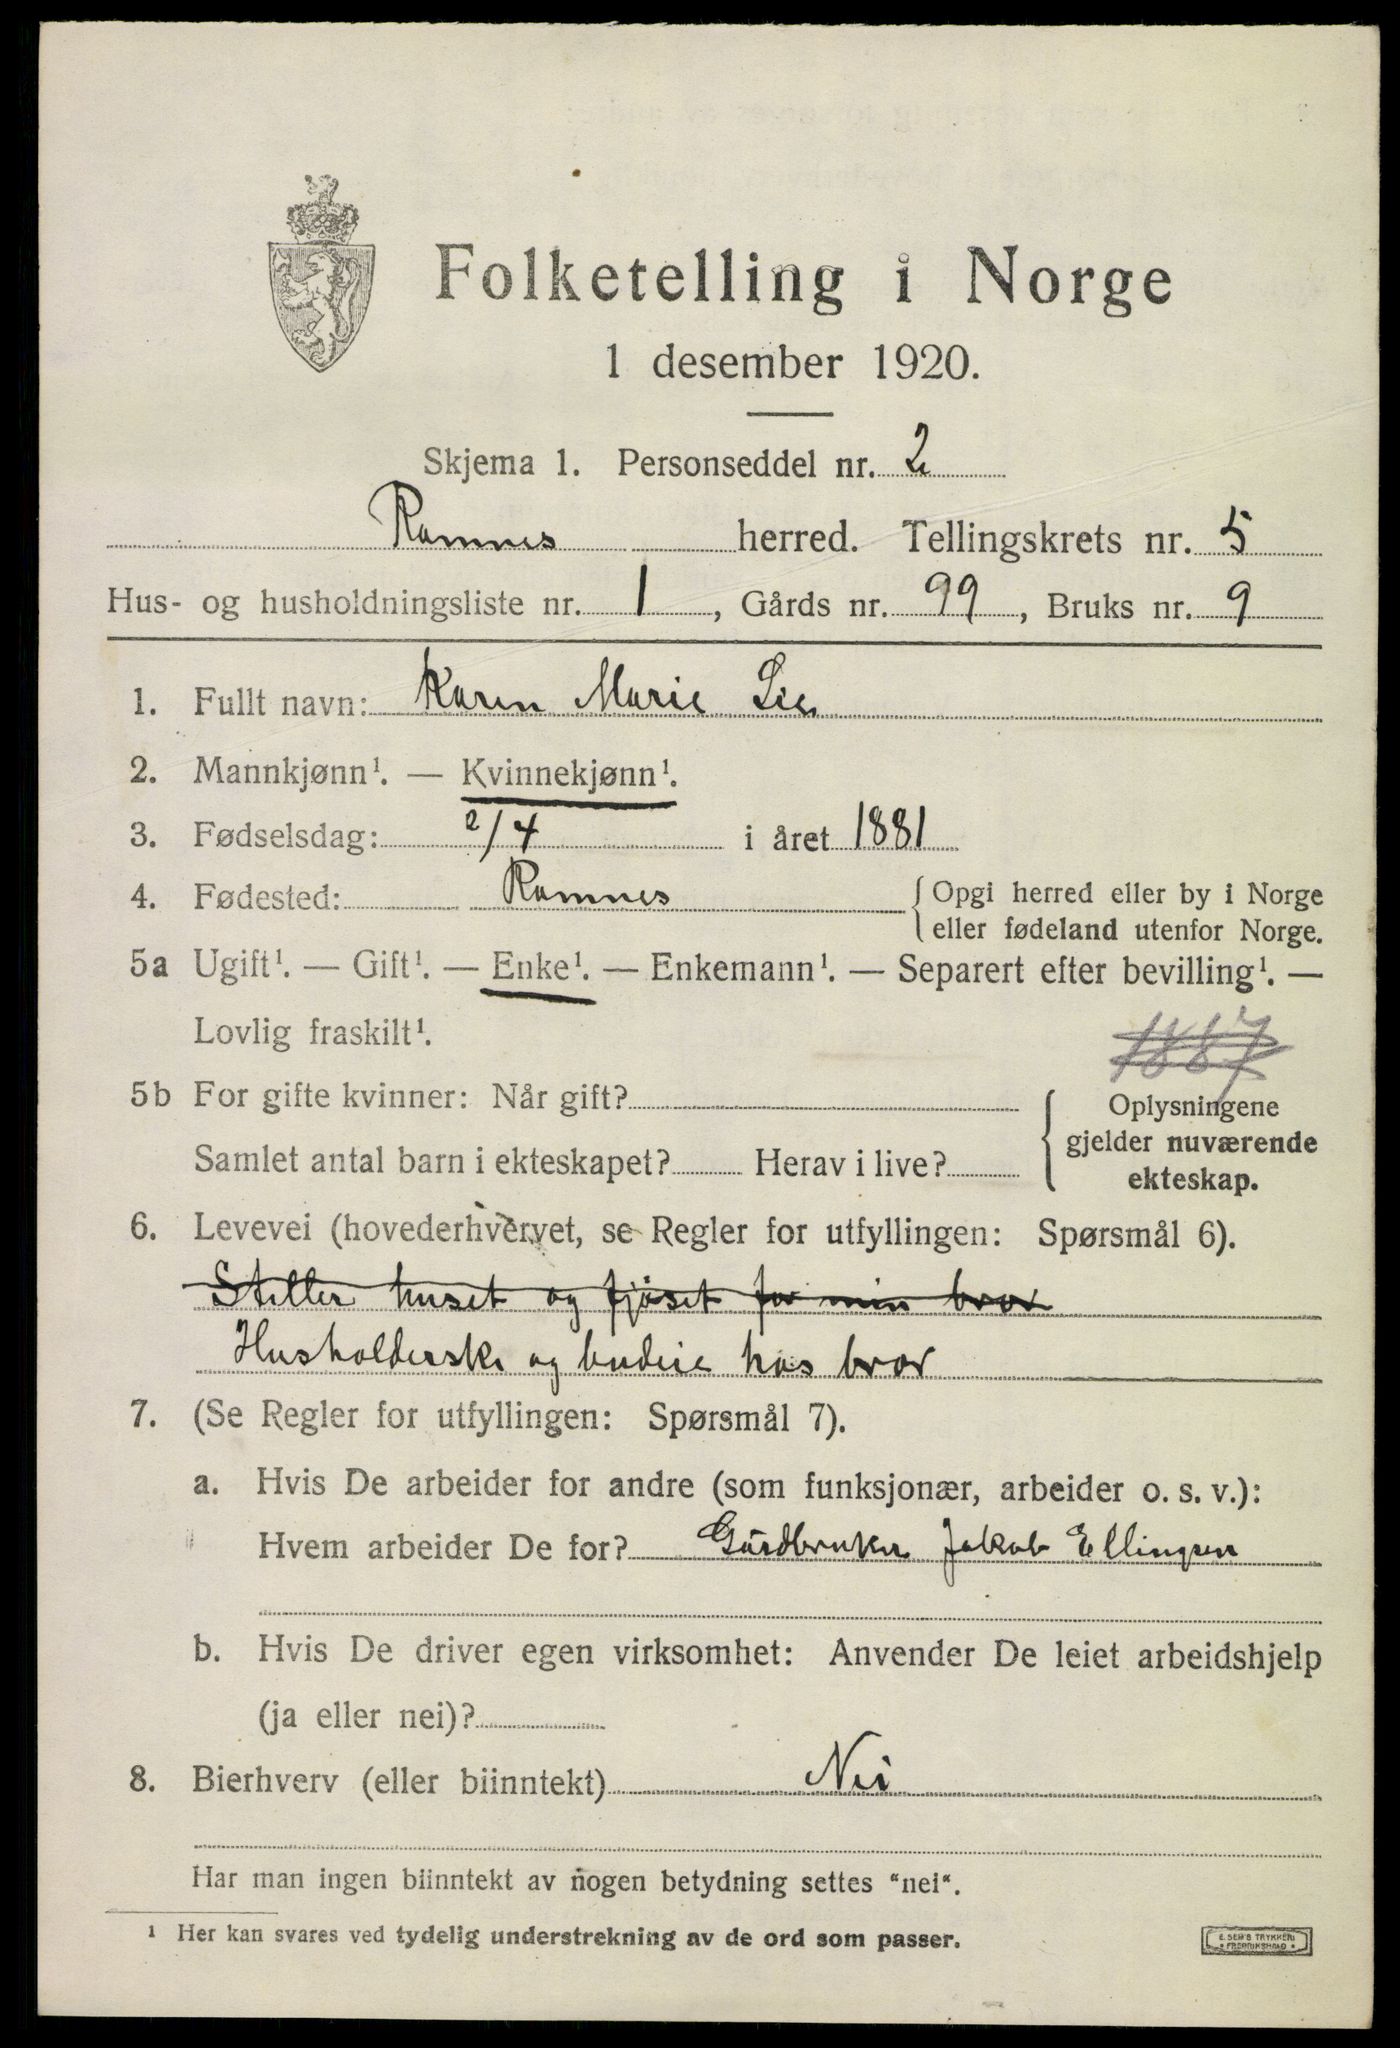 Folketelling i Norge
1 desember 1920.
Skjema 1. Personseddel nr. 2
Ramnes herred. Tellingskrets nr. 5
Hus- og husholdningsliste nr. 1, Gårds nr. 99, Bruks nr. 9
1. Fullt navn: Karen Marie Lie
2. Mannkjønn¹. — Kvinnekjønn¹.
3. Fødselsdag: 2/4 i året 1881
4. Fødested: Ramnes { Opgi herred eller by i Norge
eller fødeland utenfor Norge.
5a Ugift¹. — Gift¹. — Enke¹. — Enkemann¹. — Separert efter bevilling¹. —
Lovlig fraskilt¹.
1887
5b For gifte kvinner: Når gift?
Samlet antal barn i ekteskapet? Herav i live?
{ Oplysningene
gjelder nuværende
ekteskap.
6. Levevei (hovederhvervet, se Regler for utfyllingen: Spørsmål 6).
Steller huset og fjöset for min bror
Husholderske og budeie hos bror
7. (Se Regler for utfyllingen: Spørsmål 7).
a. Hvis De arbeider for andre (som funksjonær, arbeider o. s. v.):
Hvem arbeider De for? Gårdbruker Jakob Ellingsen
b. Hvis De driver egen virksomhet: Anvender De leiet arbeidshjelp
(ja eller nei)?
8. Bierhverv (eller biinntekt) Nei
Har man ingen biinntekt av nogen betydning settes "nei".
¹ Her kan svares ved tydelig understrekning av de ord som passer.
E. SEM'S TRYKKERI
• FREDRIKSHALD •